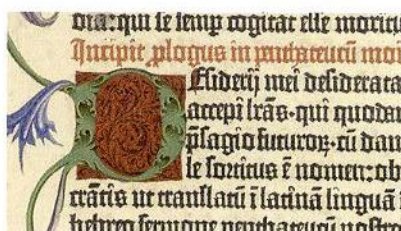 dia: qui se semp cogitat esse moritu
Incipit ꝓlogus in pentateucū moi
Desiderij mei desiderata
accepi lr̄as · qui quodam
p̄sagio futuroꝝ · cū dan
le sortitus ē nomen: ob
crātis ut translatū ī latinā linguā ī
hebreo sermone pentateucū nostro